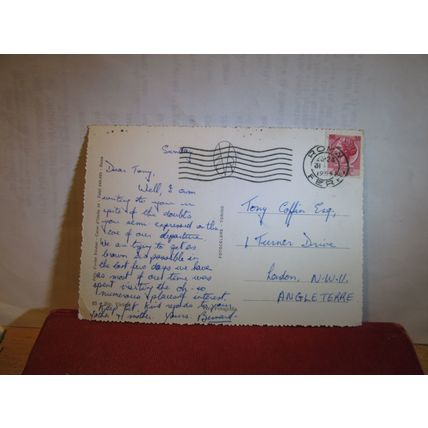 Sunday
Dear Tony,
Well, I am
writing to you in
spite of the doubts
you seem expressed on the
eve of our departure.
We are trying to get as
brown as possible in
the last few days we have
as most of our time was
spent visiting the city so
numerous places of interest.
Keep fit. Kind regards to your
father & mother. Yours, Bernard.
FOTOCELERE - TORINO
ROMA
1954
FERR
Tony Coffin Esq.,
1 Turner Drive
London, N.W.11
ANGLETERRE